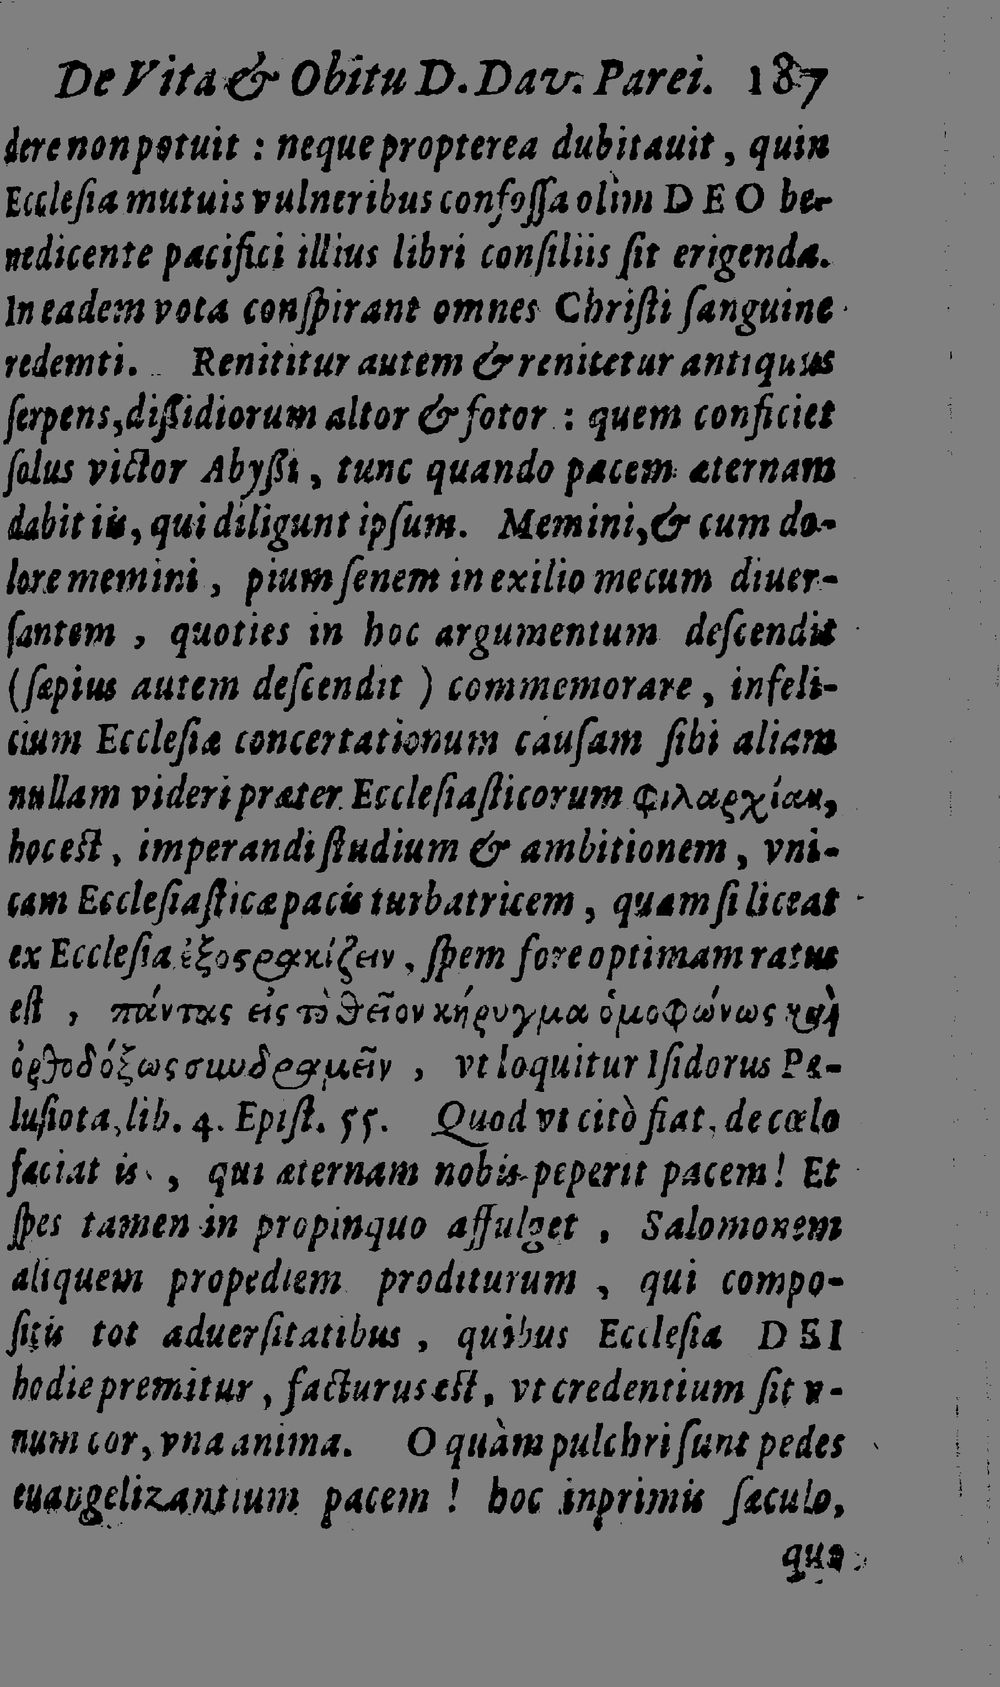 De Vita & Obitu D. Dav. Parei. 187
dere non potuit : neque propterea dubitauit , quin
Ecclesia mutuis vulneribus confossa olim DEO be-
nedicente pacifici illius libri consiliis sit erigenda.
In eadem vota conspirant omnes Christi sanguine
redemti. Renititur autem & renitetur antiquus
serpens, dissidiorum altor & fotor : quem conficiet
solus victor Abyssi , tunc quando pacem æternam
dabit iis, qui diligunt ipsum. Memini, & cum do-
lore memini , pium senem in exilio mecum diuer-
santem , quoties in hoc argumentum descendit
(sæpius autem descendit ) commemorare , infeli-
cium Ecclesiæ concertationum causam sibi aliam
nullam videri præter Ecclesiasticorum φιλαρχίαν,
hoc est , imperandi studium & ambitionem , vni-
cam Ecclesiasticæ pacis turbatricem , quam si liceat
ex Ecclesia ἐξοςρακίζειν , spem fore optimam ratus
est , πάντας εἰς τὸ θεῖον κήρυγμα ὁμοφώνως καὶ
ὀρθοδόξως συνδραμεῖν , vt loquitur Isidorus Pe-
lusiota, lib. 4. Epist. 55. Quod vt citò fiat, de cœlo
faciat is , qui æternam nobis peperit pacem! Et
spes tamen in propinquo affulget , Salomonem
aliquem propediem proditurum , qui compo-
sitis tot aduersitatibus , quibus Ecclesia DEI
hodie premitur , facturus est, vt credentium sit v-
num cor, vna anima. O quàm pulchri sunt pedes
euangelizantium pacem ! hoc inprimis sæculo,
quo